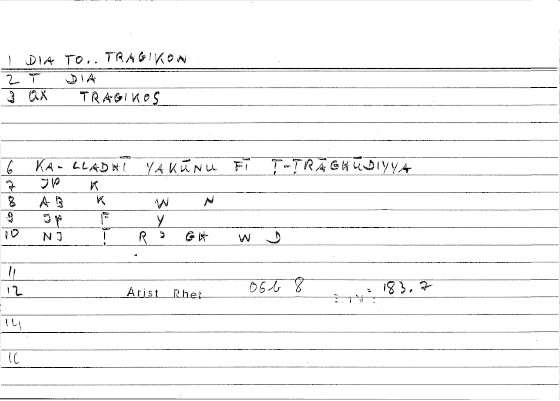 1 DIA TO.. TRAGIKON
2 T DIA
3 QX TRAGIKOS
6 KA-LLADHĪ YAKŪNU FĪ Ṭ-ṬRĀGHŪDIYYA
7 JP K
8 AB K W N
9 JP F Y
10 NJ Ṭ R ʾ GH W D
11
12 Arist Rhet 06b 8 183.7
14
16